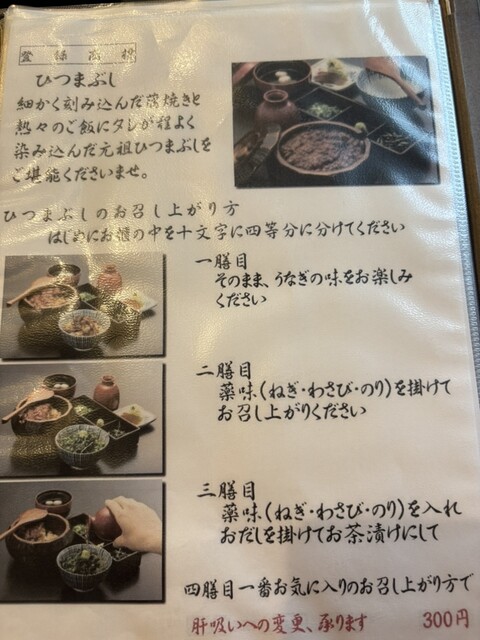 登録商標
ひつまぶし
細かく刻み込んだ蒲焼きと
熱々のご飯にタレが程よく
染み込んだ元祖ひつまぶしを
ご堪能くださいませ。
ひつまぶしのお召し上がり方
はじめにお櫃の中を十文字に四等分に分けてください
一膳目
そのまま、うなぎの味をお楽しみ
ください
二膳目
薬味(ねぎ・わさび・のり)を掛けて
お召し上がりください
三膳目
薬味(ねぎ・わさび・のり)を入れ
おだしを掛けてお茶漬けにして
四膳目一番お気に入りのお召し上がり方で
肝吸いへの変更、承ります 300円